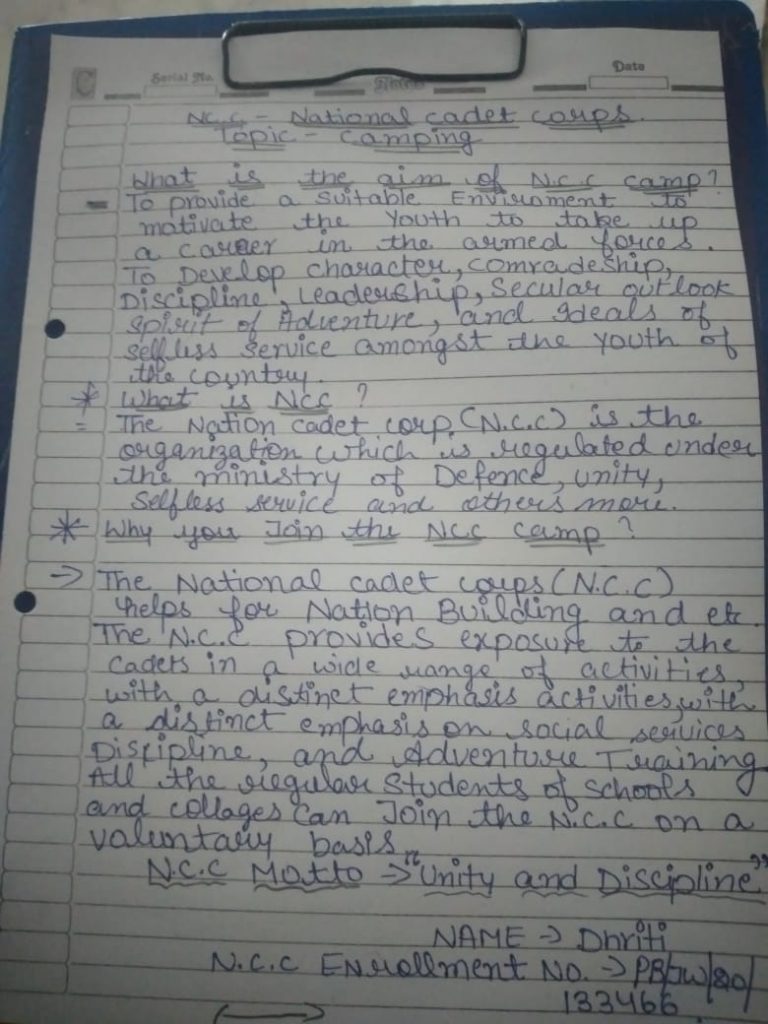 C
Serial No.
Date
N.C.C - National cadet corps.
Topic - Camping
What is the aim of N.C.C camp?
- To provide a suitable Enviroment to
motivate the Youth to take up
a career in the armed forces.
To Develop character, comradeship,
Discipline, Leadership, Secular outlook
spirit of Adventure, and Ideals of
selfless service amongst the youth of
the country.
* What is NCC ?
= The Nation cadet corp. (N.C.C) is the
organization which is regulated under
the ministry of Defence, unity,
selfless service and others more.
* Why you Join the NCC camp ?
→ The National cadet corps (N.C.C)
helps for Nation Building and etc.
The N.C.C provides exposure to the
cadets in a wide range of activities,
with a distinct emphasis activities, with
a distinct emphasis on social services
Discipline, and Adventure Training
All the regular Students of schools
and collages can Join the N.C.C on a
voluntary basis.
N.C.C Motto → "Unity and Discipline"
NAME → Dhriti
N.C.C Enrollment No. →
133466